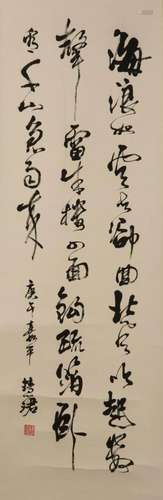 海浪如雲去卻回北風吹起數
聲雷朱樓四面鉤疏箔卧
看千山急雨來 庚午嘉平